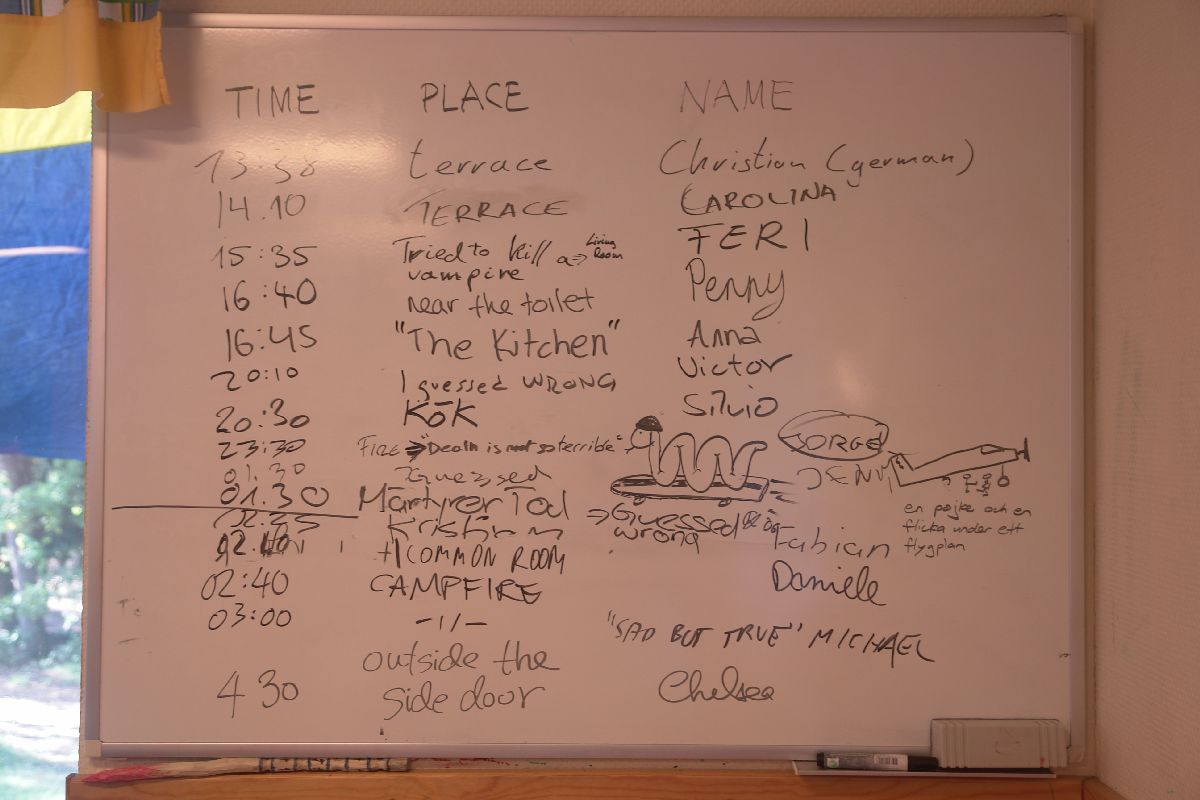 TIME PLACE NAME
13:30 terrace Christian (german)
14.10 TERRACE CAROLINA
15:35 Tried to kill a vampire => Living Room FERI
16:40 near the toilet Penny
16:45 "The Kitchen" Anna
20:10 I guessed WRONG Victor
20:30 Kök Silvio
23:30 FIRE => "Death is not so terrible" JORGE
01.30 Guessed JENNY
01.30 Märtyrer Tod => Guessed wrong
en pojke och en
flicka under ett
flygplan
02:25 Fabian
02.40 COMMON ROOM
02:40 CAMPFIRE Daniele
03:00 -11- "SAD BUT TRUE" MICHAEL
outside the
4 30 side door Chelsea